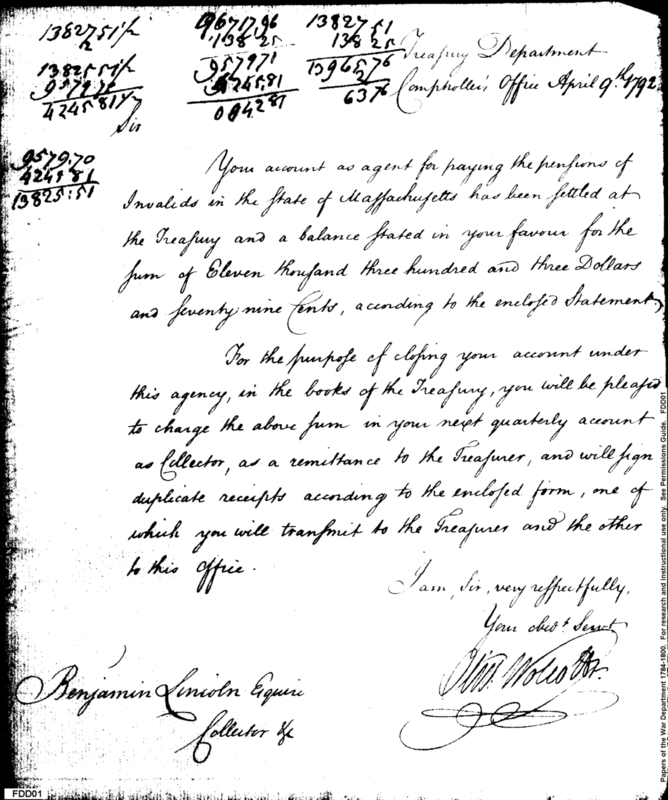 138275 1/2
2
138255 1/2
957970
424581 1/2
967196
138 25
957971
424581
004281
1382751
138 25
1396576
21
6376
Treasury Department
Comptroller's Office April 9th. 1792.
Sir
9579.70
4245.81
13825:51
Your account as agent for paying the pensions of
Invalids in the State of Massachusetts has been settled at
the Treasury and a balance stated in your favour for the
sum of Eleven thousand three hundred and three Dollars
and seventy nine Cents, according to the enclosed Statement,
For the purpose of closing your account under
this agency, in the books of the Treasury, you will be pleased
to charge the above sum in your next quarterly account
as Collector, as a remittance to the Treasurer, and will sign
duplicate receipts according to the enclosed form, one of
which you will transmit to the Treasurer and the other
to this Office.
I am, Sir, very respectfully,
Your obedt. Servt
Oliv. Wolcott Jr.
Benjamin Lincoln Esquire
Collector &c
FDD01
Papers of the War Department 1784-1800. For research and instructional use only. See Permissions Guide. FDD01